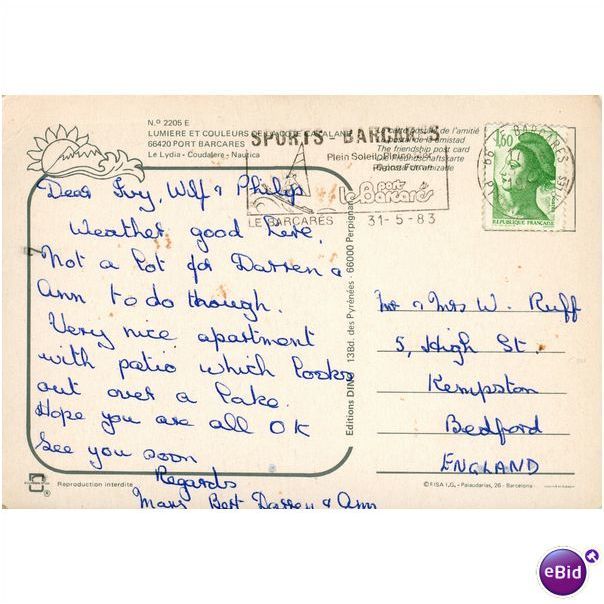 Nº 2205 E
LUMIERE ET COULEURS DE LA COTE CATALANE
66420 PORT BARCARES
Le Lydia - Coudalere - Nautica
SPORTS - BARCARES
Plein Soleil, Pleine
LE BARCARES
port
le Barcarès
31-5-83
La carte postale de l'amitié
La postal de la amistad
The friendship post card
1,60
REPUBLIQUE FRANÇAISE
BARCARES
Dear Ivy, Wilf & Philip
Weather good here,
Not a lot for Darren &
Ann to do though.
Very nice apartment
with patio which looks
out over a lake.
Hope you are all OK
See you soon
Regards
Bert Darren & Ann
Editions DINO 138d. des Pyrénées - 66000 Perpignan
Mr & Mrs W. Ruff
5, High St.
Kempston
Bedford
ENGLAND
Reproduction interdite
© FISA I.G. - Palaudarias, 26 - Barcelona
eBid